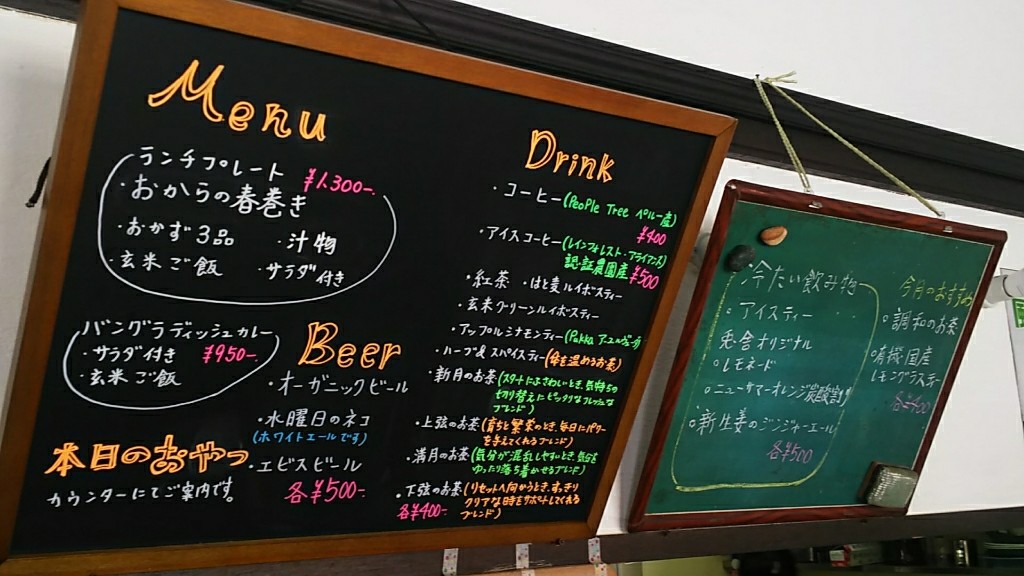 Menu
ランチプレート ¥1.300-.
・おからの春巻き
・おかず3品 ・汁物
・玄米ご飯 ・サラダ付き
バングラディッシュカレー
・サラダ付き ¥950-.
・玄米ご飯
本日のおやつ
カウンターにてご案内です。
Beer
・オーガニックビール
・水曜日のネコ
(ホワイトエールです)
・エビスビール
各¥500-.
Drink
・コーヒー(People Tree ペルー産)
¥400
・アイスコーヒー(レインフォレスト・アライアンス)
認証農園産 ¥500
・紅茶 ・はと麦ルイボスティー
・玄米グリーンルイボスティー
・アップルシナモンティー(Pukka アユルヴェーダ)
・ハーブ&スパイスティー(体を温めるお茶)
・新月のお茶(スタートにふさわしいとき、気持ちの
切り替えにピッタリなフレッシュな
ブレンド)
・上弦のお茶(育ちと繁栄のとき、毎日にパワー
を与えてくれるブレンド)
・満月のお茶(気分が混乱しやすいとき、気分を
ゆったり落ち着かせるブレンド)
・下弦のお茶(リセットへ向かうとき、すっきり
クリアな時をサポートしてくれる
ブレンド)
各¥400-.
・冷たい飲み物
・アイスティー
オリジナル
・レモネード
・ニューサマーオレンジ炭酸割り
・新生姜のジンジャーエール
各¥500
今月のおすすめ
・調和のお茶
・有機・国産
レモングラスティー
各¥400